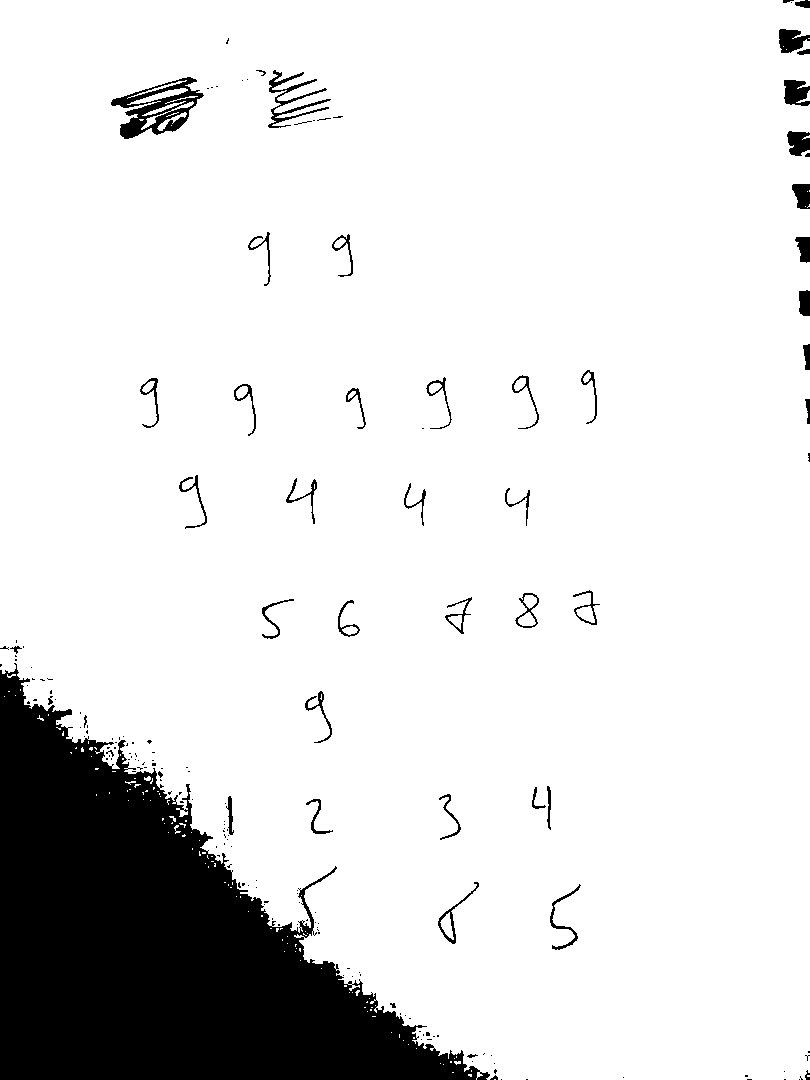 9 9
9 9 9 9 9 9
9 4 4 4
5 6 7 8 7
9
1 2 3 4
5 5 5